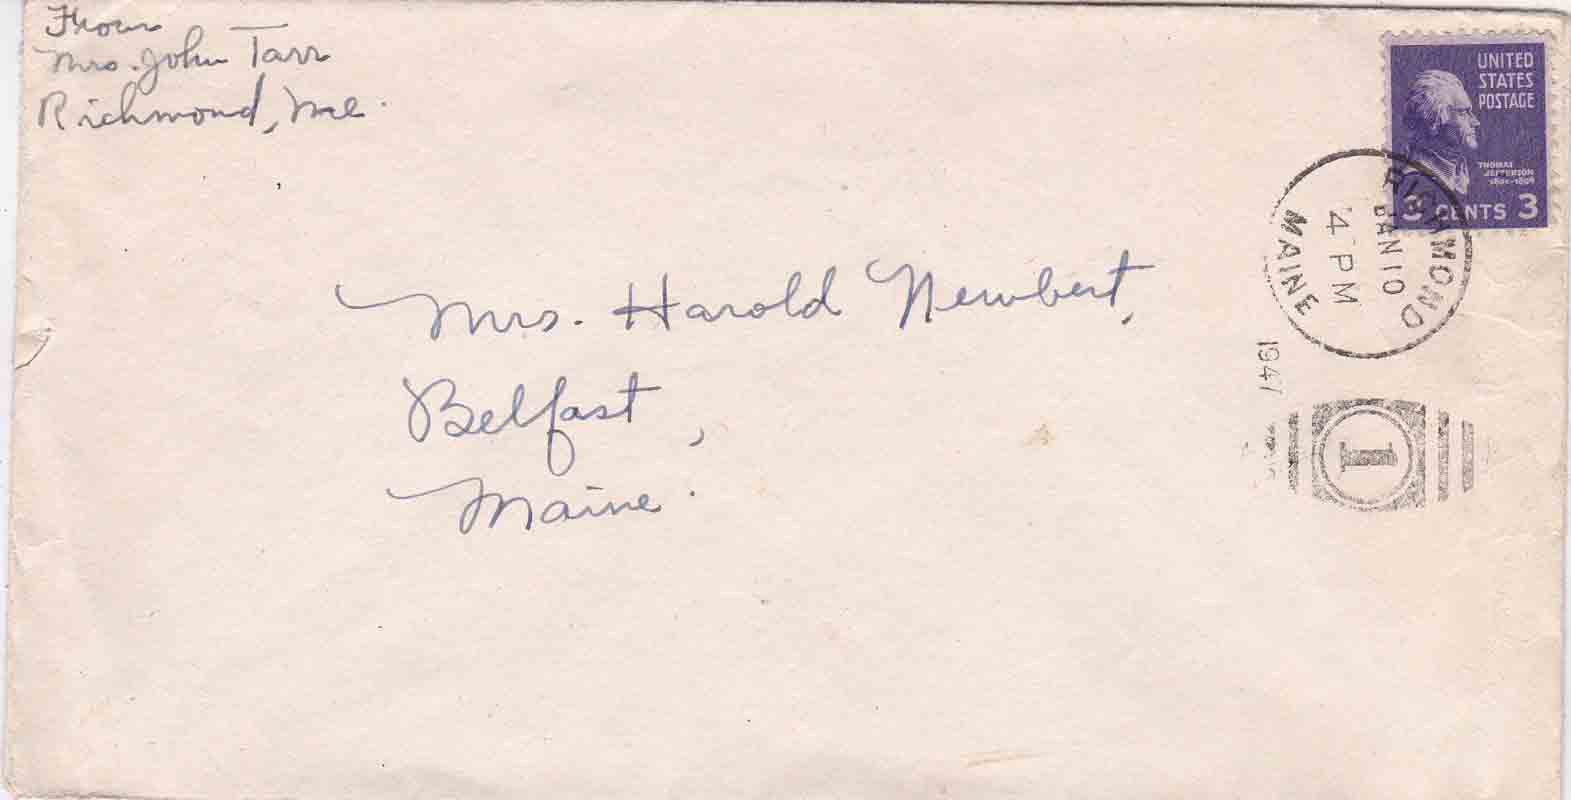 From
Mrs. John Tarr
Richmond, Me.
UNITED
STATES
POSTAGE
THOMAS
JEFFERSON
1801-1809
3 CENTS 3
RICHMOND
JAN 10
4 PM
MAINE
1947
1
Mrs. Harold Newbert,
Belfast,
Maine.